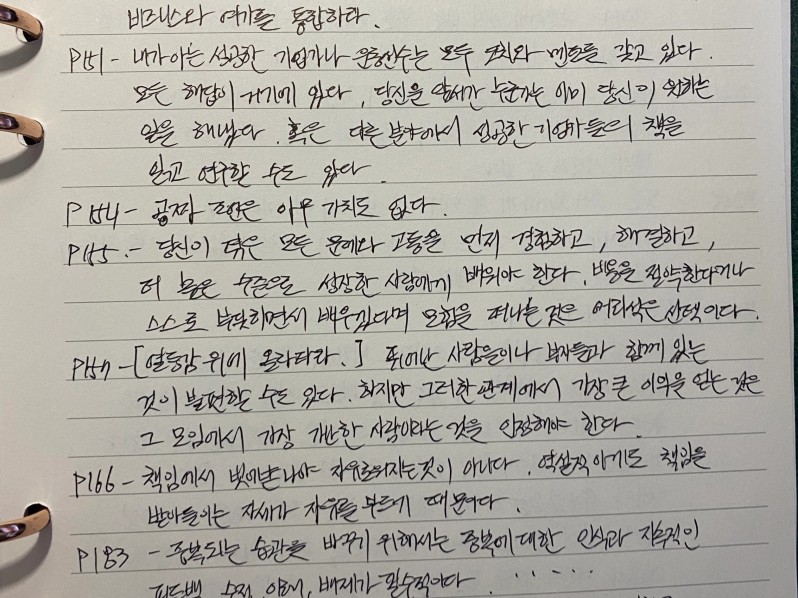 비즈니스와 여가를 통합하라.
P151 - 내가 아는 성공한 기업가나 운동선수는 모두 코치와 멘토를 갖고 있다.
모든 해답이 거기에 있다. 당신을 앞서간 누군가는 이미 당신이 원하는
일을 해냈다. 혹은 다른 분야에서 성공한 기업가들의 책을
읽고 연구할 수도 있다.
P154 - 공짜 조언은 아무 가치도 없다.
P155. - 당신이 겪은 모든 문제와 고통을 먼저 경험하고, 해결하고,
더 높은 수준으로 성장한 사람에게 배워야 한다. 비용을 절약한다거나
스스로 부딪히면서 배우겠다며 모험을 떠나는 것은 어리석은 선택이다.
P157 - [열등감 위에 올라타라.] 뛰어난 사람들이나 부자들과 함께 있는
것이 불편할 수도 있다. 하지만 그러한 관계에서 가장 큰 이익을 얻는 것은
그 모임에서 가장 가난한 사람이라는 것을 인정해야 한다.
P166 - 책임에서 벗어난나야 자유로워지는 것이 아니다. 역설적이게도 책임을
받아들이는 자세가 자유를 부르기 때문이다.
P183 - 중복되는 습관을 바꾸기 위해서는 중복에 대한 인식과 지속적인
피드백, 수정, 배제가 필수적이다 .....